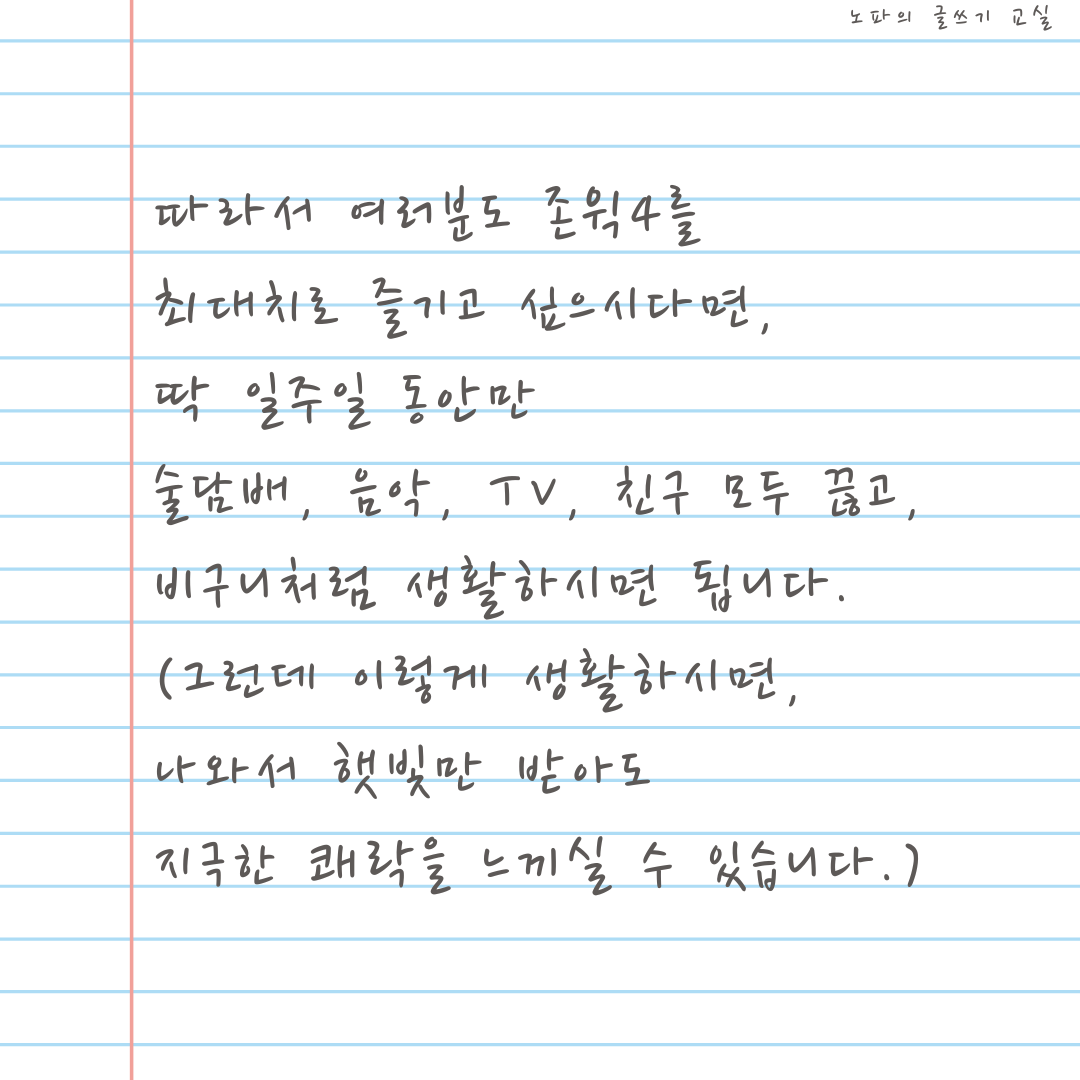 노파의 글쓰기 교실
따라서 여러분도 존윅4를
최대치로 즐기고 싶으시다면,
딱 일주일 동안만
술담배, 음악, TV, 친구 모두 끊고,
비구니처럼 생활하시면 됩니다.
(그런데 이렇게 생활하시면,
나와서 햇빛만 받아도
지극한 쾌락을 느끼실 수 있습니다.)